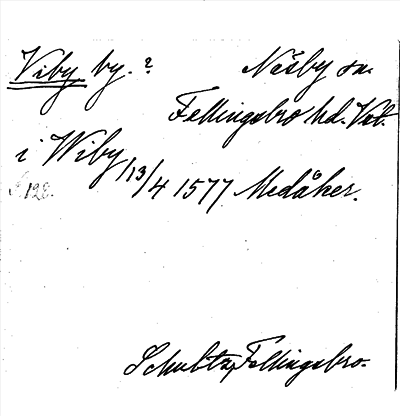 Viby by. ? Näsby sn.
Fellingsbro hd. Vstl.
i Wiby 13/4 1577 Medåker.
s. 128.
Schubtz, Fellingsbro.